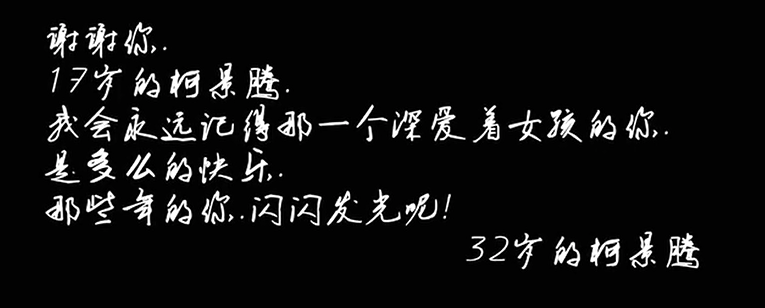 谢谢你.
17岁的柯景腾.
我会永远记得那一个深爱着女孩的你.
是多么的快乐.
那些年的你.闪闪发光呢!
32岁的柯景腾